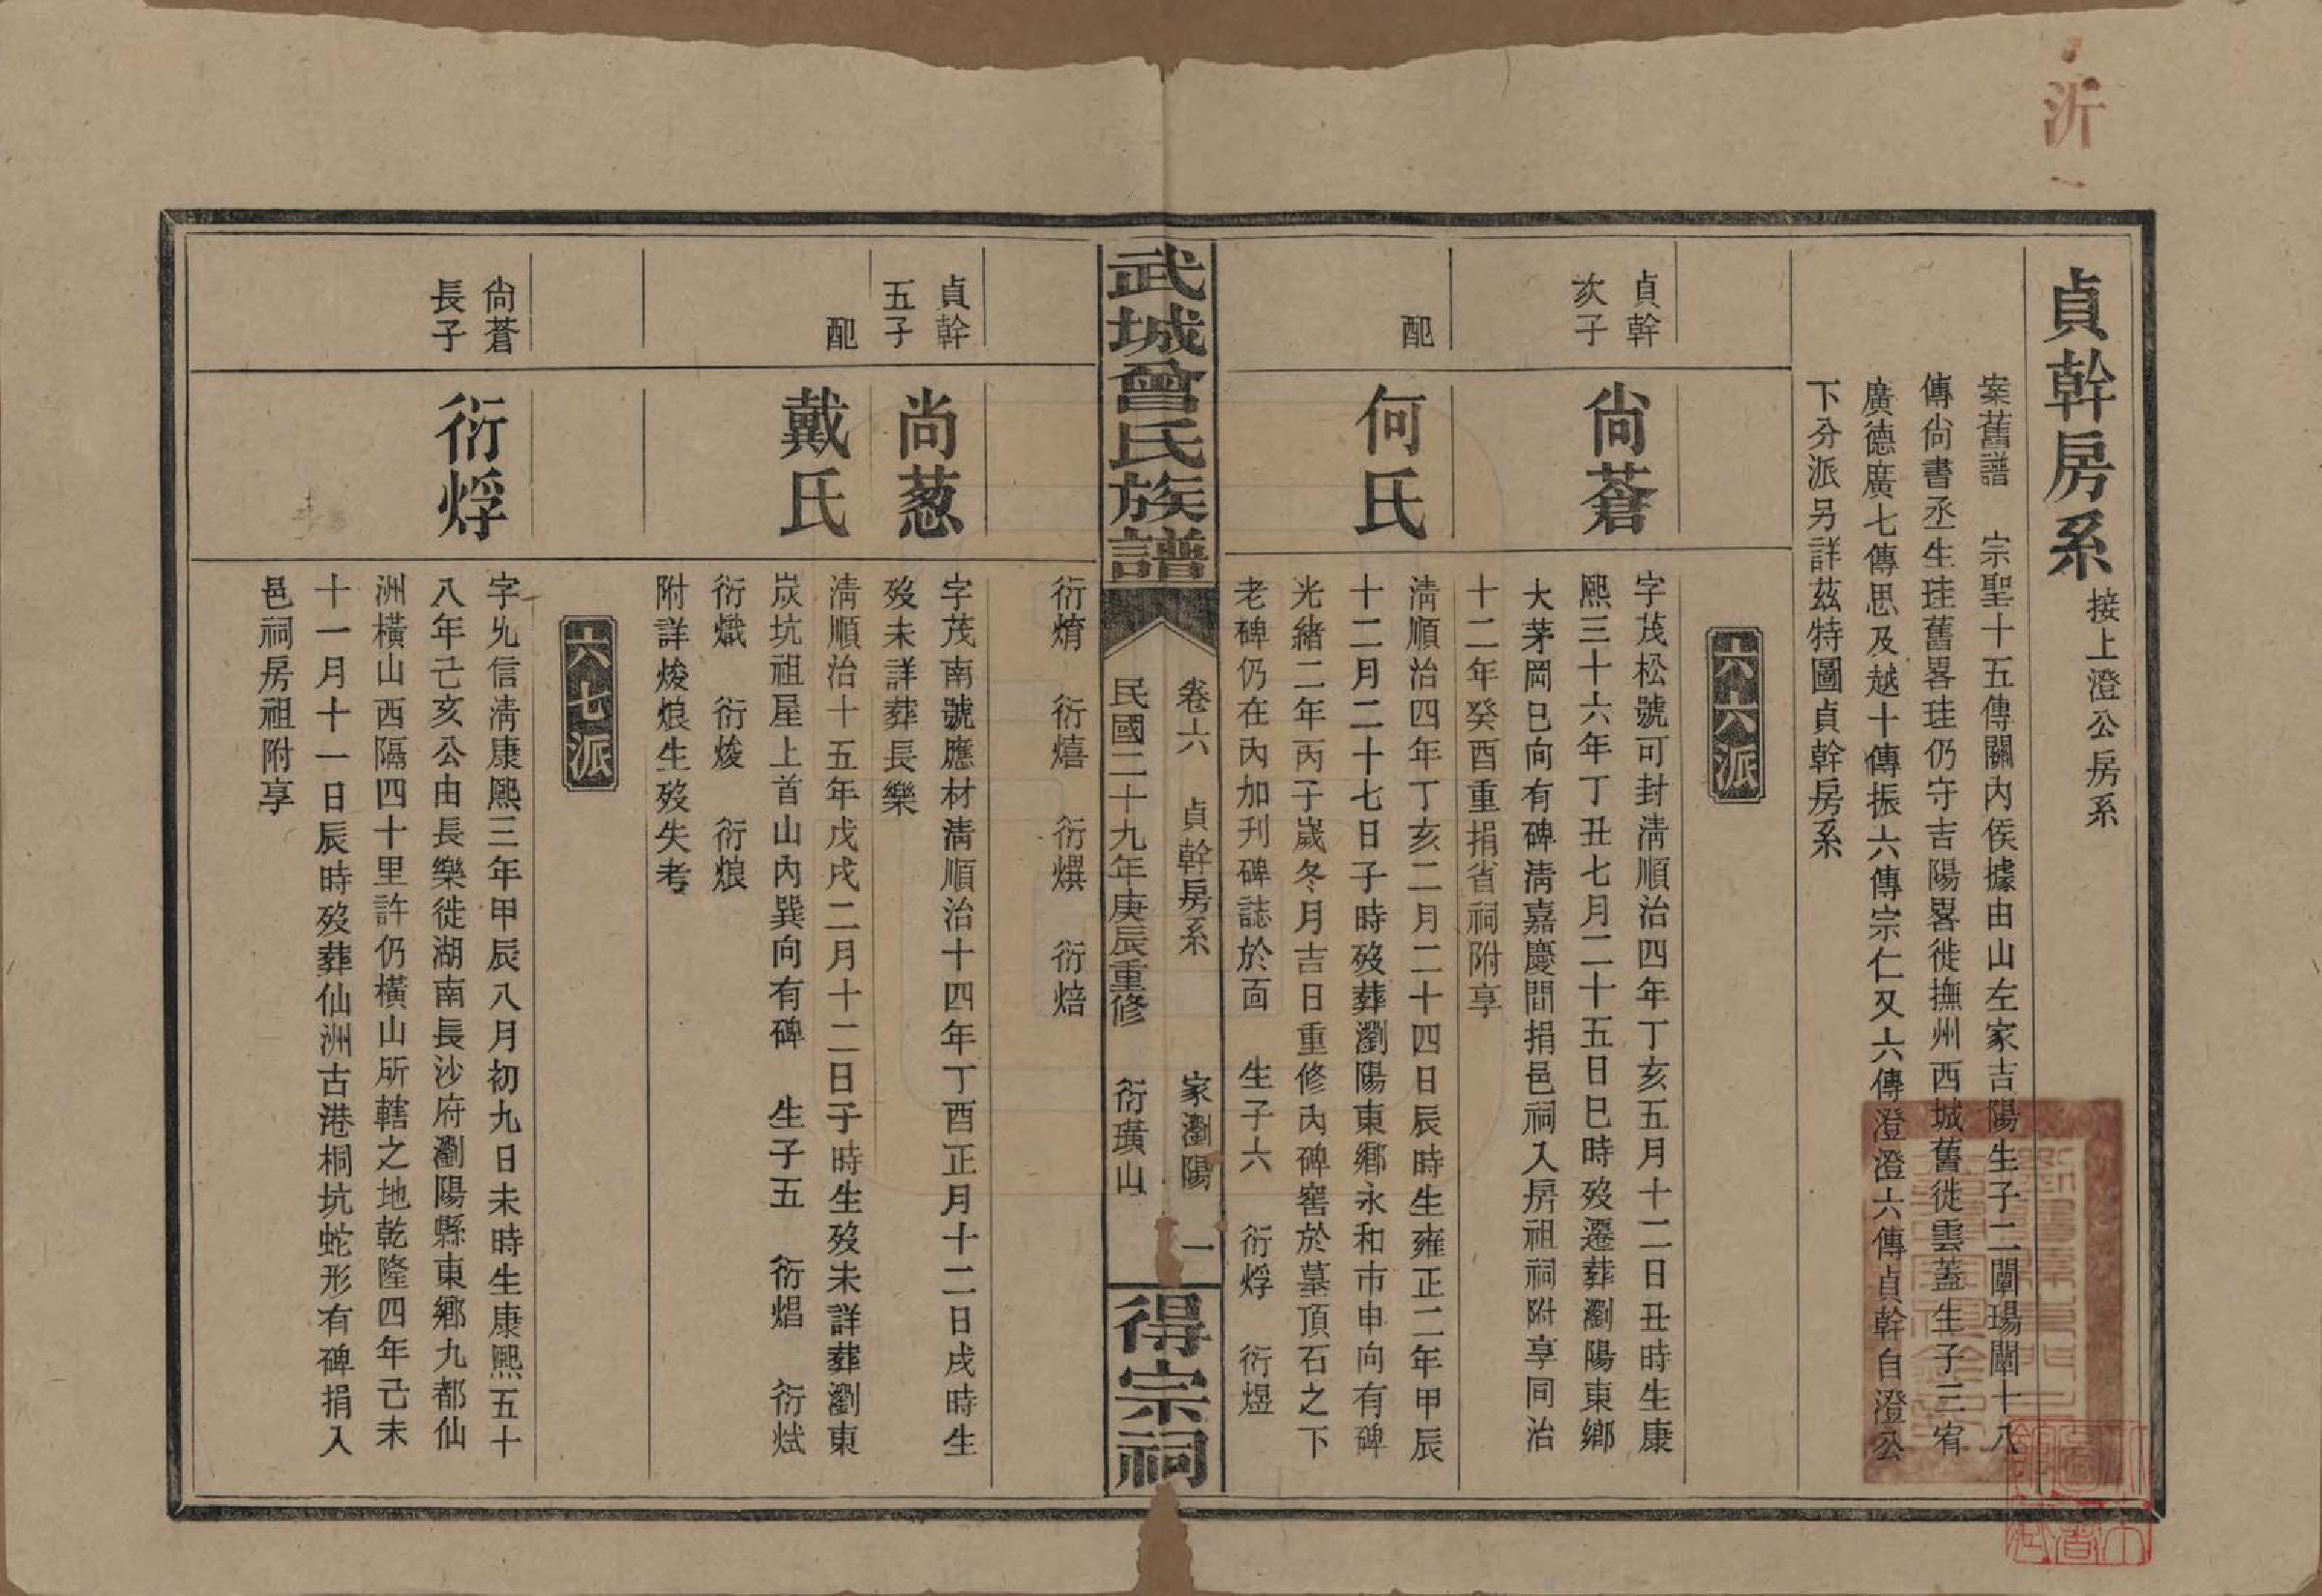 沂一
貞幹房系 接上澄公房系
案舊譜　宗聖十五傳關內侯據由山左家吉陽生子二闡瑒闡十八
傳尙書丞生珪舊畧珪仍守吉陽畧徙撫州西城舊徙雲蓋生子三宥
廣德廣七傳思及越十傳振六傳宗仁又六傳澄澄六傳貞幹自澄公
下分派另詳茲特圖貞幹房系
六六派
貞幹次子
尙蒼
字茂松號可封淸順治四年丁亥五月十二日丑時生康
熙三十六年丁丑七月二十五日巳時歿遷葬瀏陽東鄉
大茅岡巳向有碑淸嘉慶間捐邑祠入房祖祠附享同治
十二年癸酉重捐省祠附享
配
何氏
淸順治四年丁亥二月二十四日辰時生雍正二年甲辰
十二月二十七日子時歿葬瀏陽東鄉永和市申向有碑
光緖二年丙子歲冬月吉日重修內碑窖於墓頂石之下
老碑仍在內加刋碑誌於面　生子六　衍烰　衍煜
武城曾氏族譜
卷六　貞幹房系　家瀏陽　一
民國二十九年庚辰重修　衍璜山
得宗祠
衍焴　衍熺　衍熼　衍焙
貞幹五子
尙葱
字茂南號應材淸順治十四年丁酉正月十二日戌時生
歿未詳葬長樂
配
戴氏
淸順治十五年戊戌二月十二日子時生歿未詳葬瀏東
炭坑祖屋上首山內巽向有碑　生子五　衍焻　衍烒
衍熾　衍焌　衍烺
附詳焌烺生歿失考
六七派
尙蒼長子
衍烰
字允信淸康熙三年甲辰八月初九日未時生康熙五十
八年己亥公由長樂徙湖南長沙府瀏陽縣東鄉九都仙
洲橫山西隔四十里許仍橫山所轄之地乾隆四年己未
十一月十一日辰時歿葬仙洲古港桐坑蛇形有碑捐入
邑祠房祖附享